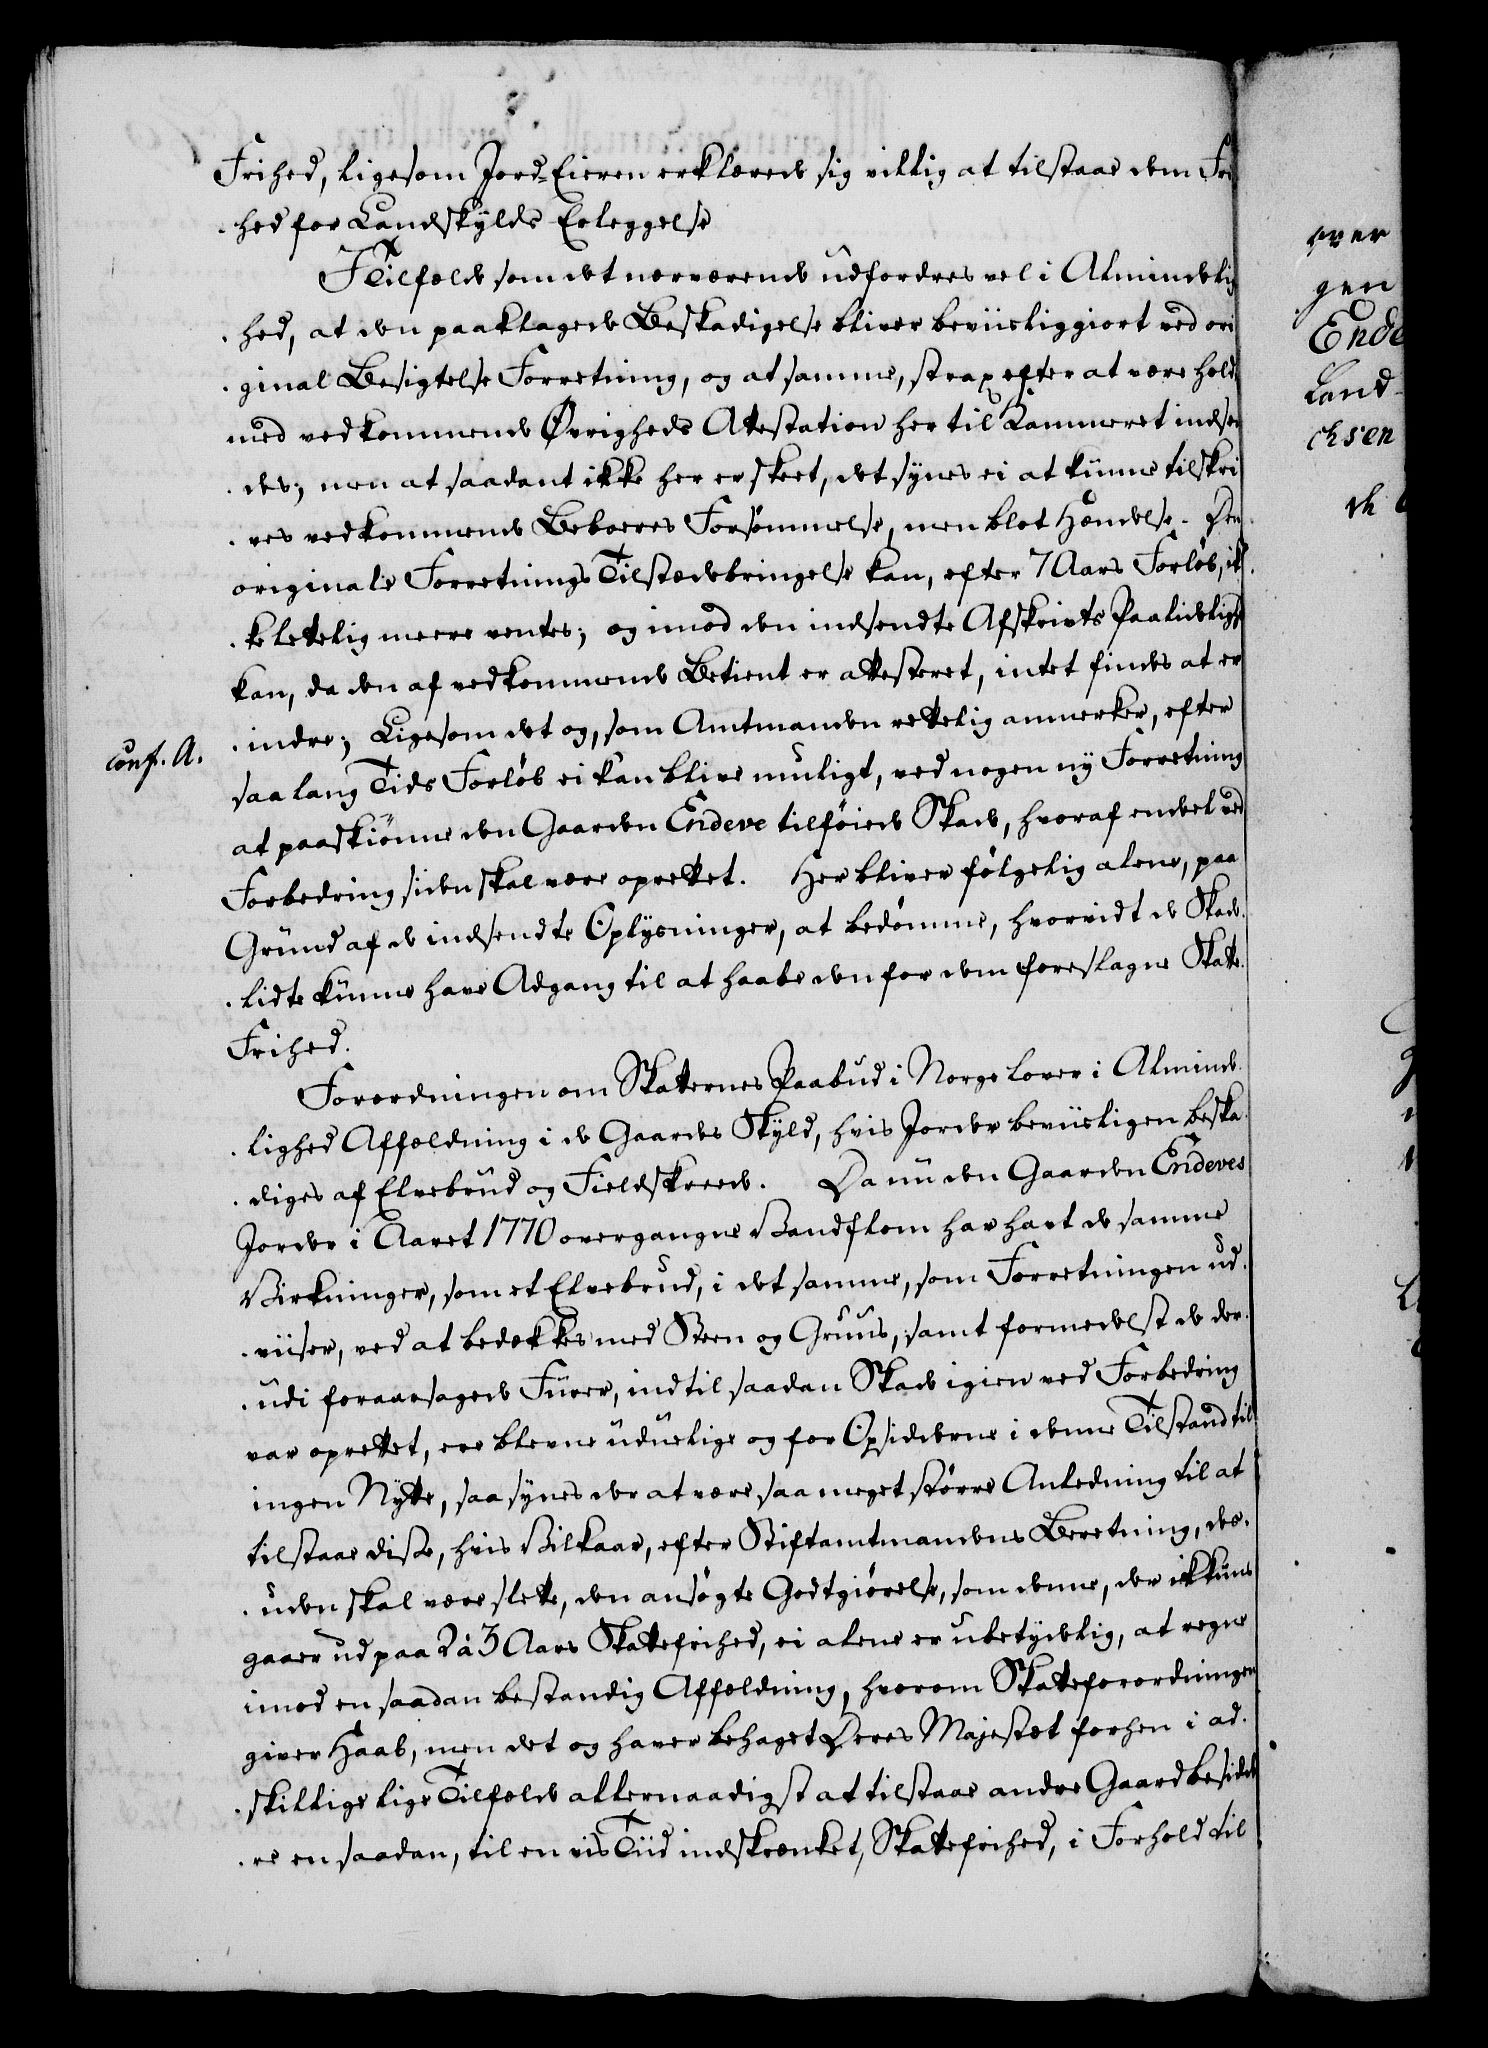 Frihed, ligesom Jord-Eieren erklærede sig villig at tilstaae dem Fri
hed for Landskylds Erleggelse
I Tilfælde som det nærværende udfordres vel i Almindelig
hed, at den paaklagede Beskadigelse bliver beviisliggiort ved ori
ginal Besigtelse Forretning, og at samme, strax efter at være holdt,
med vedkommende Øvrigheds Attestation her til Kammeret indsen
des; men at saadant ikke her er skeet, det synes ei at kunne tilskri
ves vedkommende Beboeres Forsømmelse, men blot Hændelse. Den
originale Forretnings Tilstædebringelse kan, efter 7 Aars Forløb, ik
ke letelig meere ventes; og imod den indsendte Afskrivts Paalideligh
kan, da den af vedkommende Betient er attesteret, intet findes at er
indre; Ligesom det og, som Amtmanden rettelig anmerker, efter
conf. A.
saa lang Tids Forløb ei kan blive muligt, ved nogen ny Forretning
at paaskiønne den Gaarden Endeve tilføiede Skade, hvoraf endeel ved
Forbedring siden skal være oprettet. Her bliver følgelig alene, paa
Grund af de indsendte Oplysninger, at bedømme, hvorvidt de Skade
lidte kunne have Adgang til at haabe den for dem foreslagne Skatte
Frihed.
Forordningen om Skatternes Paabud i Norge lover i Alminde
lighed Affældning i de Gaardes Skyld, hvis Jorder beviisligen beska
diges af Elvebrud og Fieldskreed. Da nu den Gaarden Endeves
Jorder i Aaret 1770 overgangne Vandflom har havt de samme
Virkninger, som et Elvebrud, i det samme, som Forretningen ud
viiser, ved at bedækkes med Steen og Gruus, samt formedelst de der
udi foraarsagede Furer, indtil saadan Skade igien ved Forbedring
var oprettet, ere blevne uduelige og for Opsidderne i denne Tilstand til
ingen Nytte, saa synes der at være saa meget større Anledning til at
tilstaae disse, hvis Vilkaar, efter Stiftamtmandens Beretning, des
uden skal være slette, den ansøgte Godtgiørelse, som denne, der ikkuns
gaaer ud paa 2 à 3 Aars Skattefrihed, ei alene er ubetydelig, at regne
imod en saadan bestandig Affældning, hvorom Skatteforordningen
giver Haab, men det og haver behaget Deres Majestæt forhen i ad
skillige lige Tilfælde allernaadigst at tilstaae andre Gaardbesidde
re en saadan, til en vis Tiid indskrænket, Skattefrihed, i Forhold til
gen
Ende
Land-
chsen